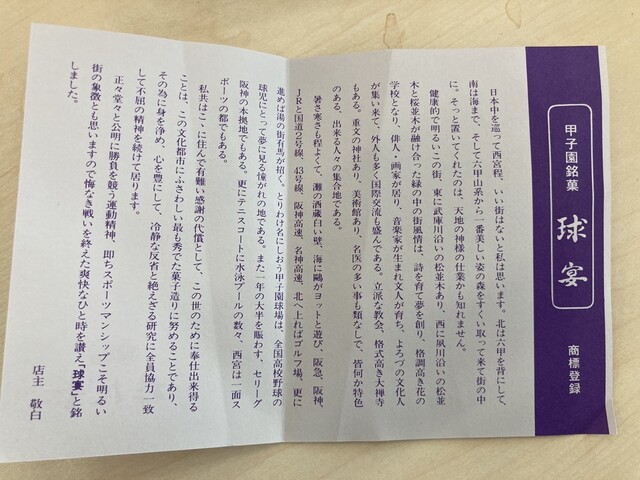 甲子園銘菓 球宴 商標登録
日本中を巡って西宮程、いい街はないと私は思います。北は六甲を背にして、
南は海まで、そして六甲山系から一番美しい姿の森をすくい取って来て街の中
に。そっと置いてくれたのは、天地の神様の仕業かも知れません。
健康的で明るいこの街、東に武庫川沿いの松並木あり、西に夙川沿いの松並
木と桜並木が融け合った緑の中の街風情は、詩を育て夢を創り、格調高き花の
学校となり、俳人・画家が居り、音楽家が生まれ文人が育ち、よろづの文化人
が集い来て、外人も多く国際交流も盛んである。立派な教会、格式高き大禅寺
もある。重文の神社あり、美術館あり、名医の多い事も類なしで、皆何か特色
のある、出来る人々の集合地である。
暑さ寒さも程よくて、灘の酒蔵白い壁、海に鷗がヨットと遊び、阪急、阪神、
JRと国道2号線、43号線、阪神高速、名神高速、北へ上ればゴルフ場、更に
進めば湯の街有馬が招く。とりわけ名にしおう甲子園球場は、全国高校野球の
球児にとって夢に見る憧がれの地である。また一年の大半を賑わす、セリーグ
阪神の本拠地でもある。更にテニスコートに水泳プールの数々、西宮は一面ス
ポーツの都でもある。
私共はこゝに住んで有難い感謝の代償として、この世のために奉仕出来得る
ことは、この文化都市にふさわしい最も秀でた菓子造りに努めることであり、
その為に身を浄め、心を豊にして、冷静な反省と絶えざる研究に全員協力一致
して不屈の精神を続けて居ります。
正々堂々と公明に勝負を競う運動精神、即ちスポーツマンシップこそ明るい
街の象徴とも思いますので悔なき戦いを終えた爽快なひと時を讃え「球宴」と銘
しました。
店主 敬白